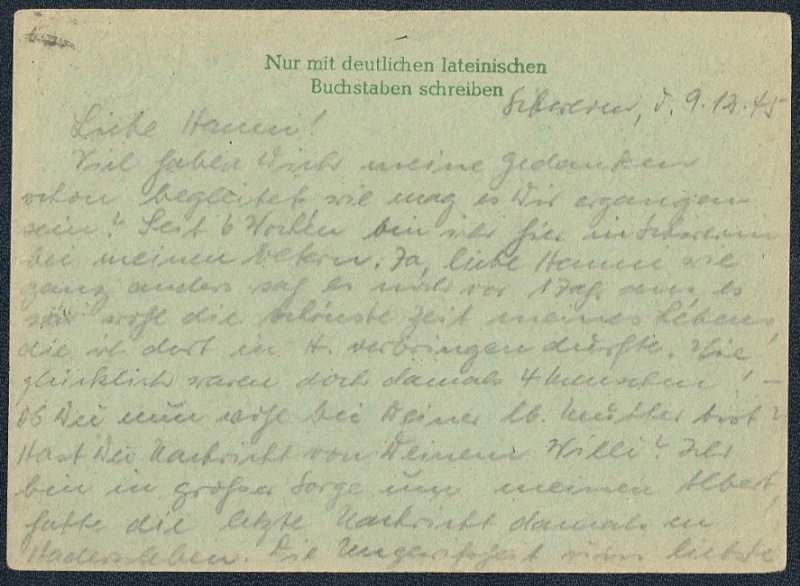 Nur mit deutlichen lateinischen
Buchstaben schreiben
Schwerin, d. 9.12.45
Liebe Hanni!
Viel haben Dich meine Gedanken
schon begleitet wie mag es Dir ergangen
sein? Seit 6 Wochen bin ich hier in Schwerin
bei meinen Eltern. Ja, liebe Hanni wie
ganz anders sah es noch vor 1 Jahr aus, es
war wohl die schönste Zeit meines Lebens,
die ich dort in H. verbringen durfte. Wie
glücklich waren doch damals 4 Menschen! -
Ob Du nun wohl bei Deiner lb. Mutter bist?
Hast Du Nachricht von Deinem Willi? Ich
bin in großer Sorge um meinen Albert,
hatte die letzte Nachricht damals in
Hadersleben. Die Ungewißheit um liebste